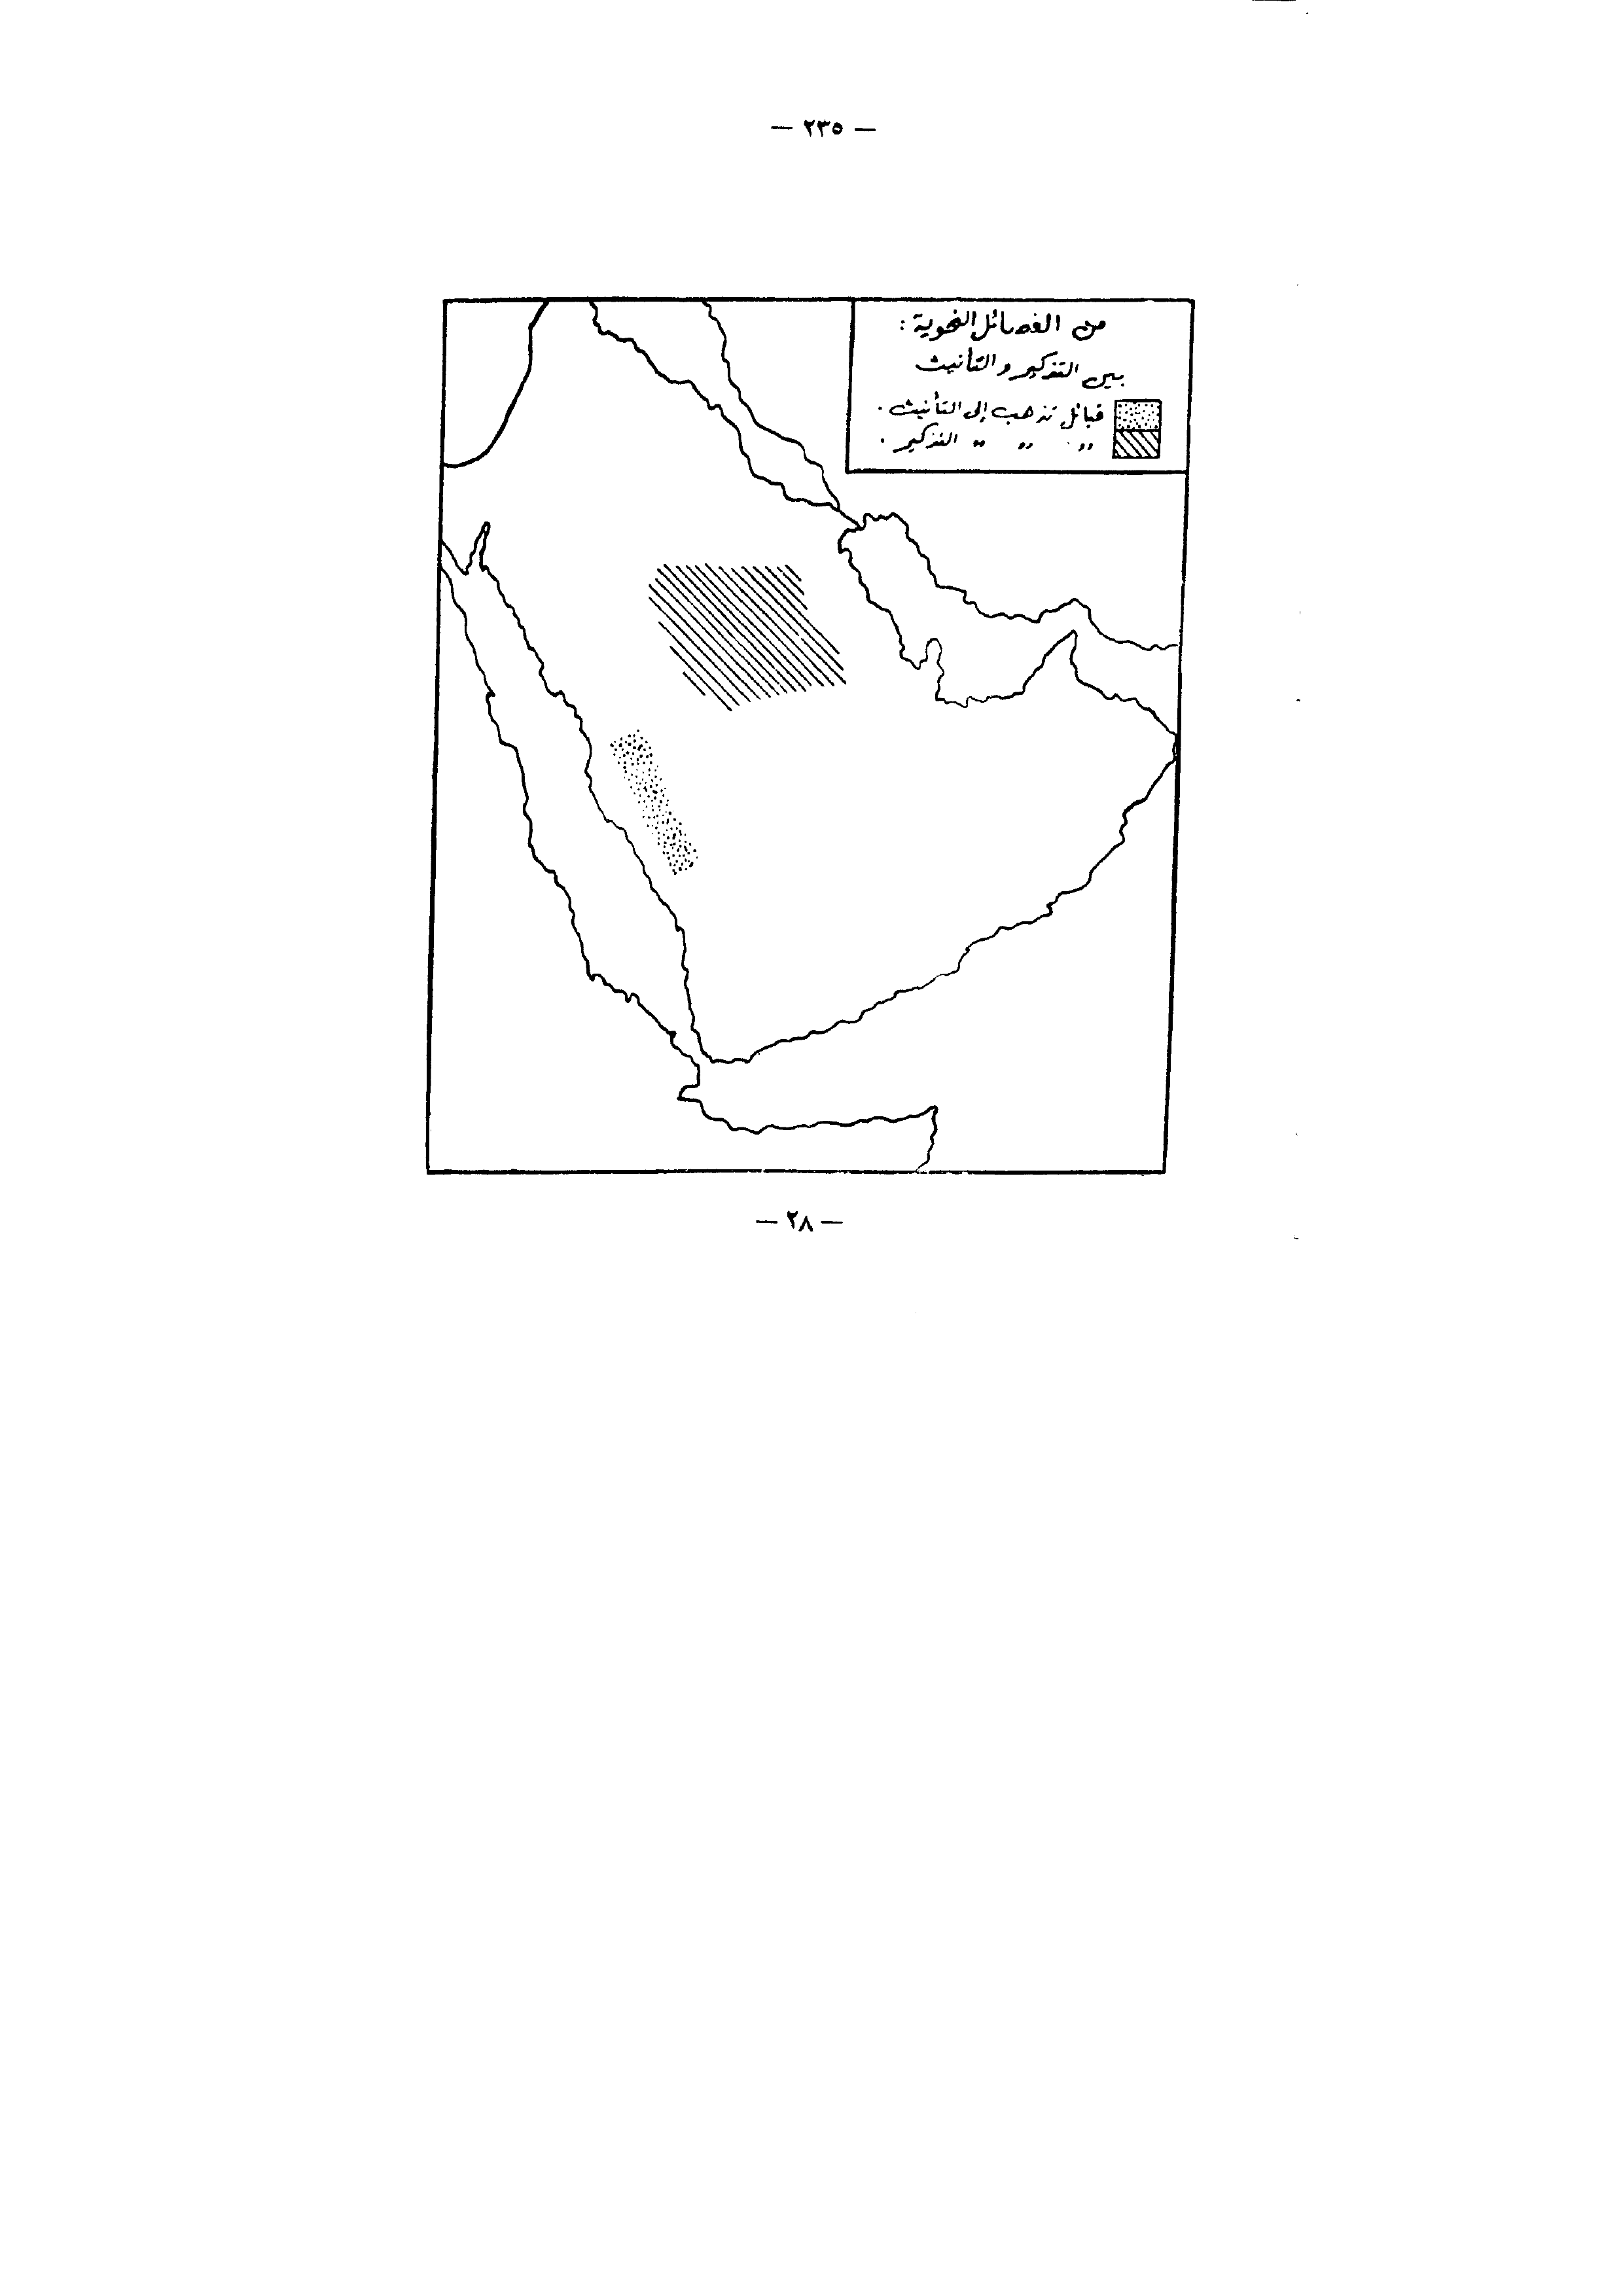 — ٢٣٥ —
من الفصائل النحوية :
بين التذكير والتأنيث
قبائل تذهب إلى التأنيث .
〃 〃 〃 التذكير .
— ٢٨ —